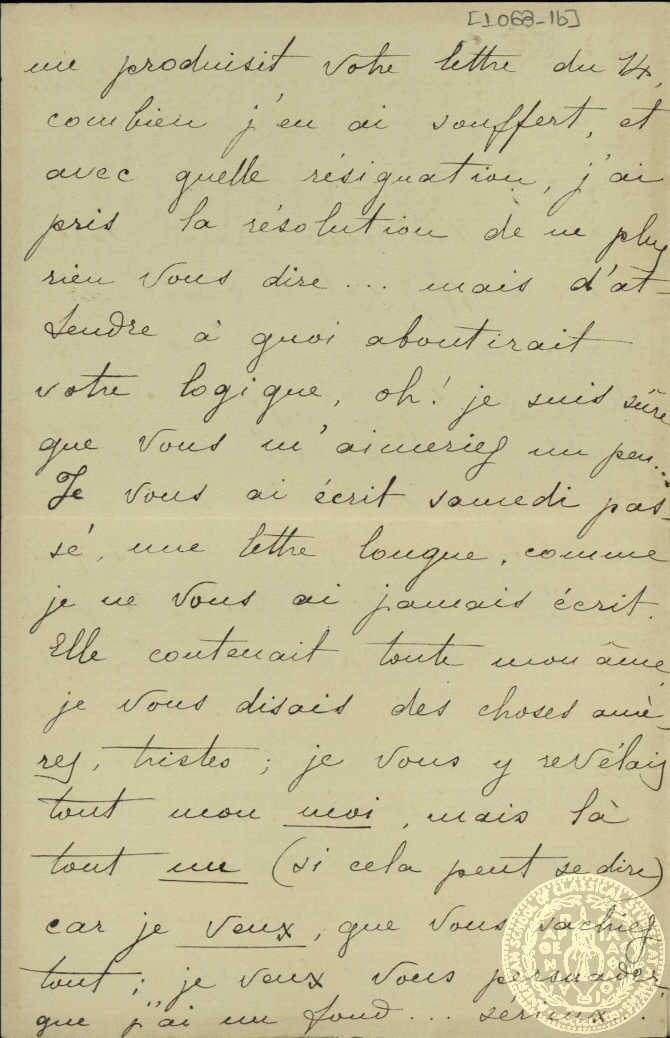 [1068-1b]
me produisit votre lettre du 14,
combien j'en ai souffert, et
avec quelle résignation, j'ai
pris la résolution de ne plus
rien vous dire... mais d'at-
tendre à quoi aboutirait
votre logique, oh! je suis sûre
que vous m'aimeriez un peu...
Je vous ai écrit samedi pas-
sé, une lettre longue, comme
je ne vous ai jamais écrit.
Elle contenait toute mon âme,
je vous disais des choses amè-
res, tristes; je vous y revélais
tout mon moi, mais là
tout nu (si cela peut se dire)
car je veux, que vous sachiez
tout; je veux vous persuader,
que j'ai un fond... sérieux...